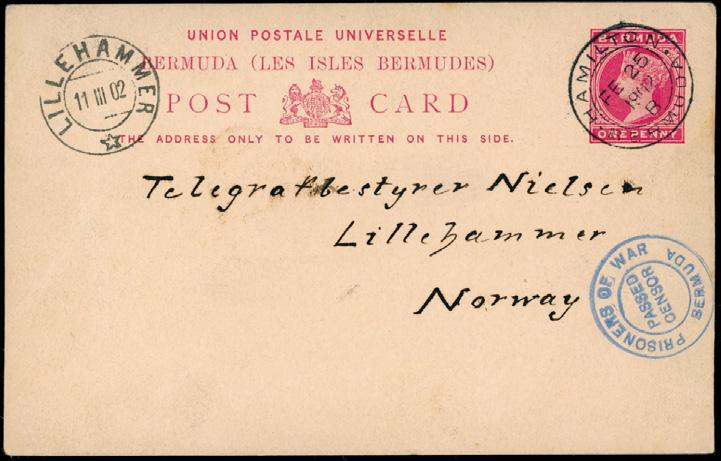 UNION POSTALE UNIVERSELLE
BERMUDA (LES ISLES BERMUDES)
POST CARD
THE ADDRESS ONLY TO BE WRITTEN ON THIS SIDE.
LILLEHAMMER
11 III 02
BERMUDA
ONE PENNY
HAMILTON BERMUDA
B
FE 25
Telegrafbestyrer Nielsen
Lillehammer
Norway
PRISONERS OF WAR
BERMUDA
PASSED
CENSOR